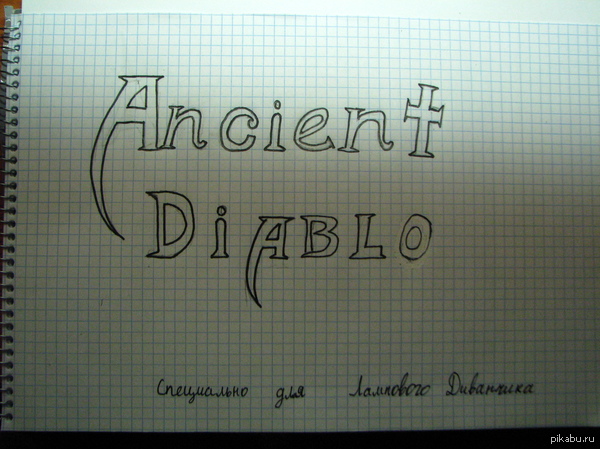 Ancient
DiABLO
Специально для Лампового Диванчика
pikabu.ru